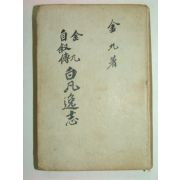 金九著
金九
自敘傳
白凡逸志